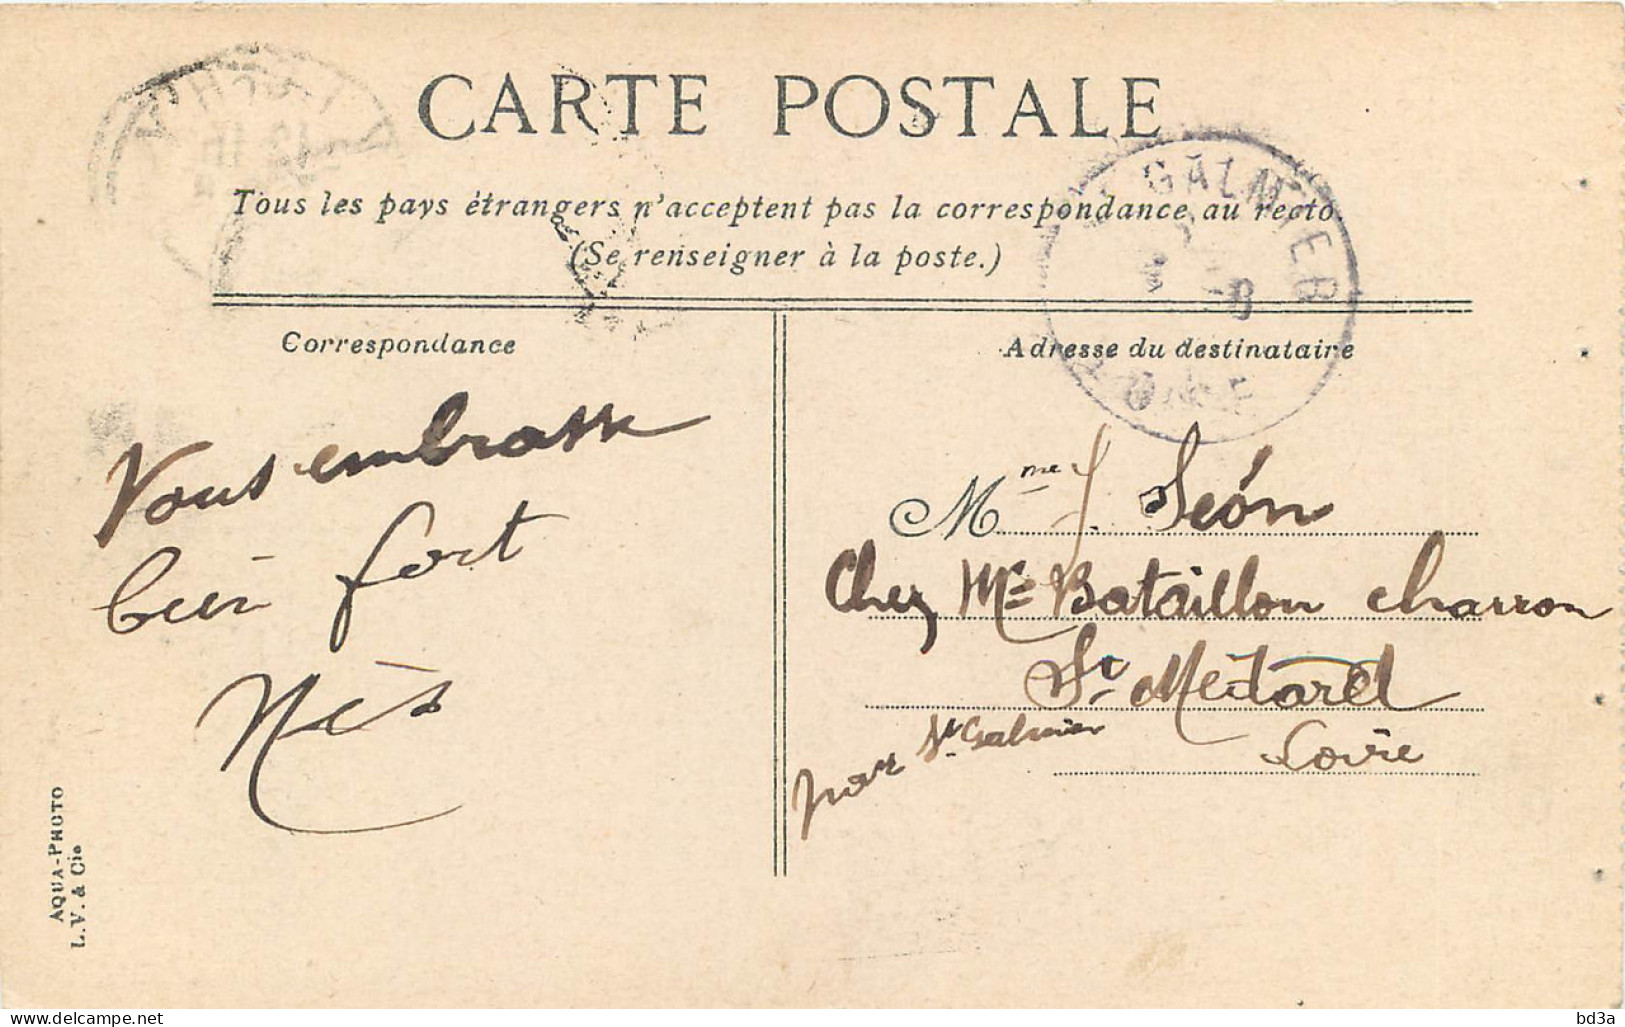 CARTE POSTALE
Tous les pays étrangers n'acceptent pas la correspondance au recto.
(Se renseigner à la poste.)
GALMIER
LOIRE
Correspondance
Adresse du destinataire
Vous embrasse
bien fort
Mme J. Séon
Chez Mr Bataillon charron
St Médard
par St Galmier
Loire
AQUA-PHOTO
L.V. & Cie
bd3a